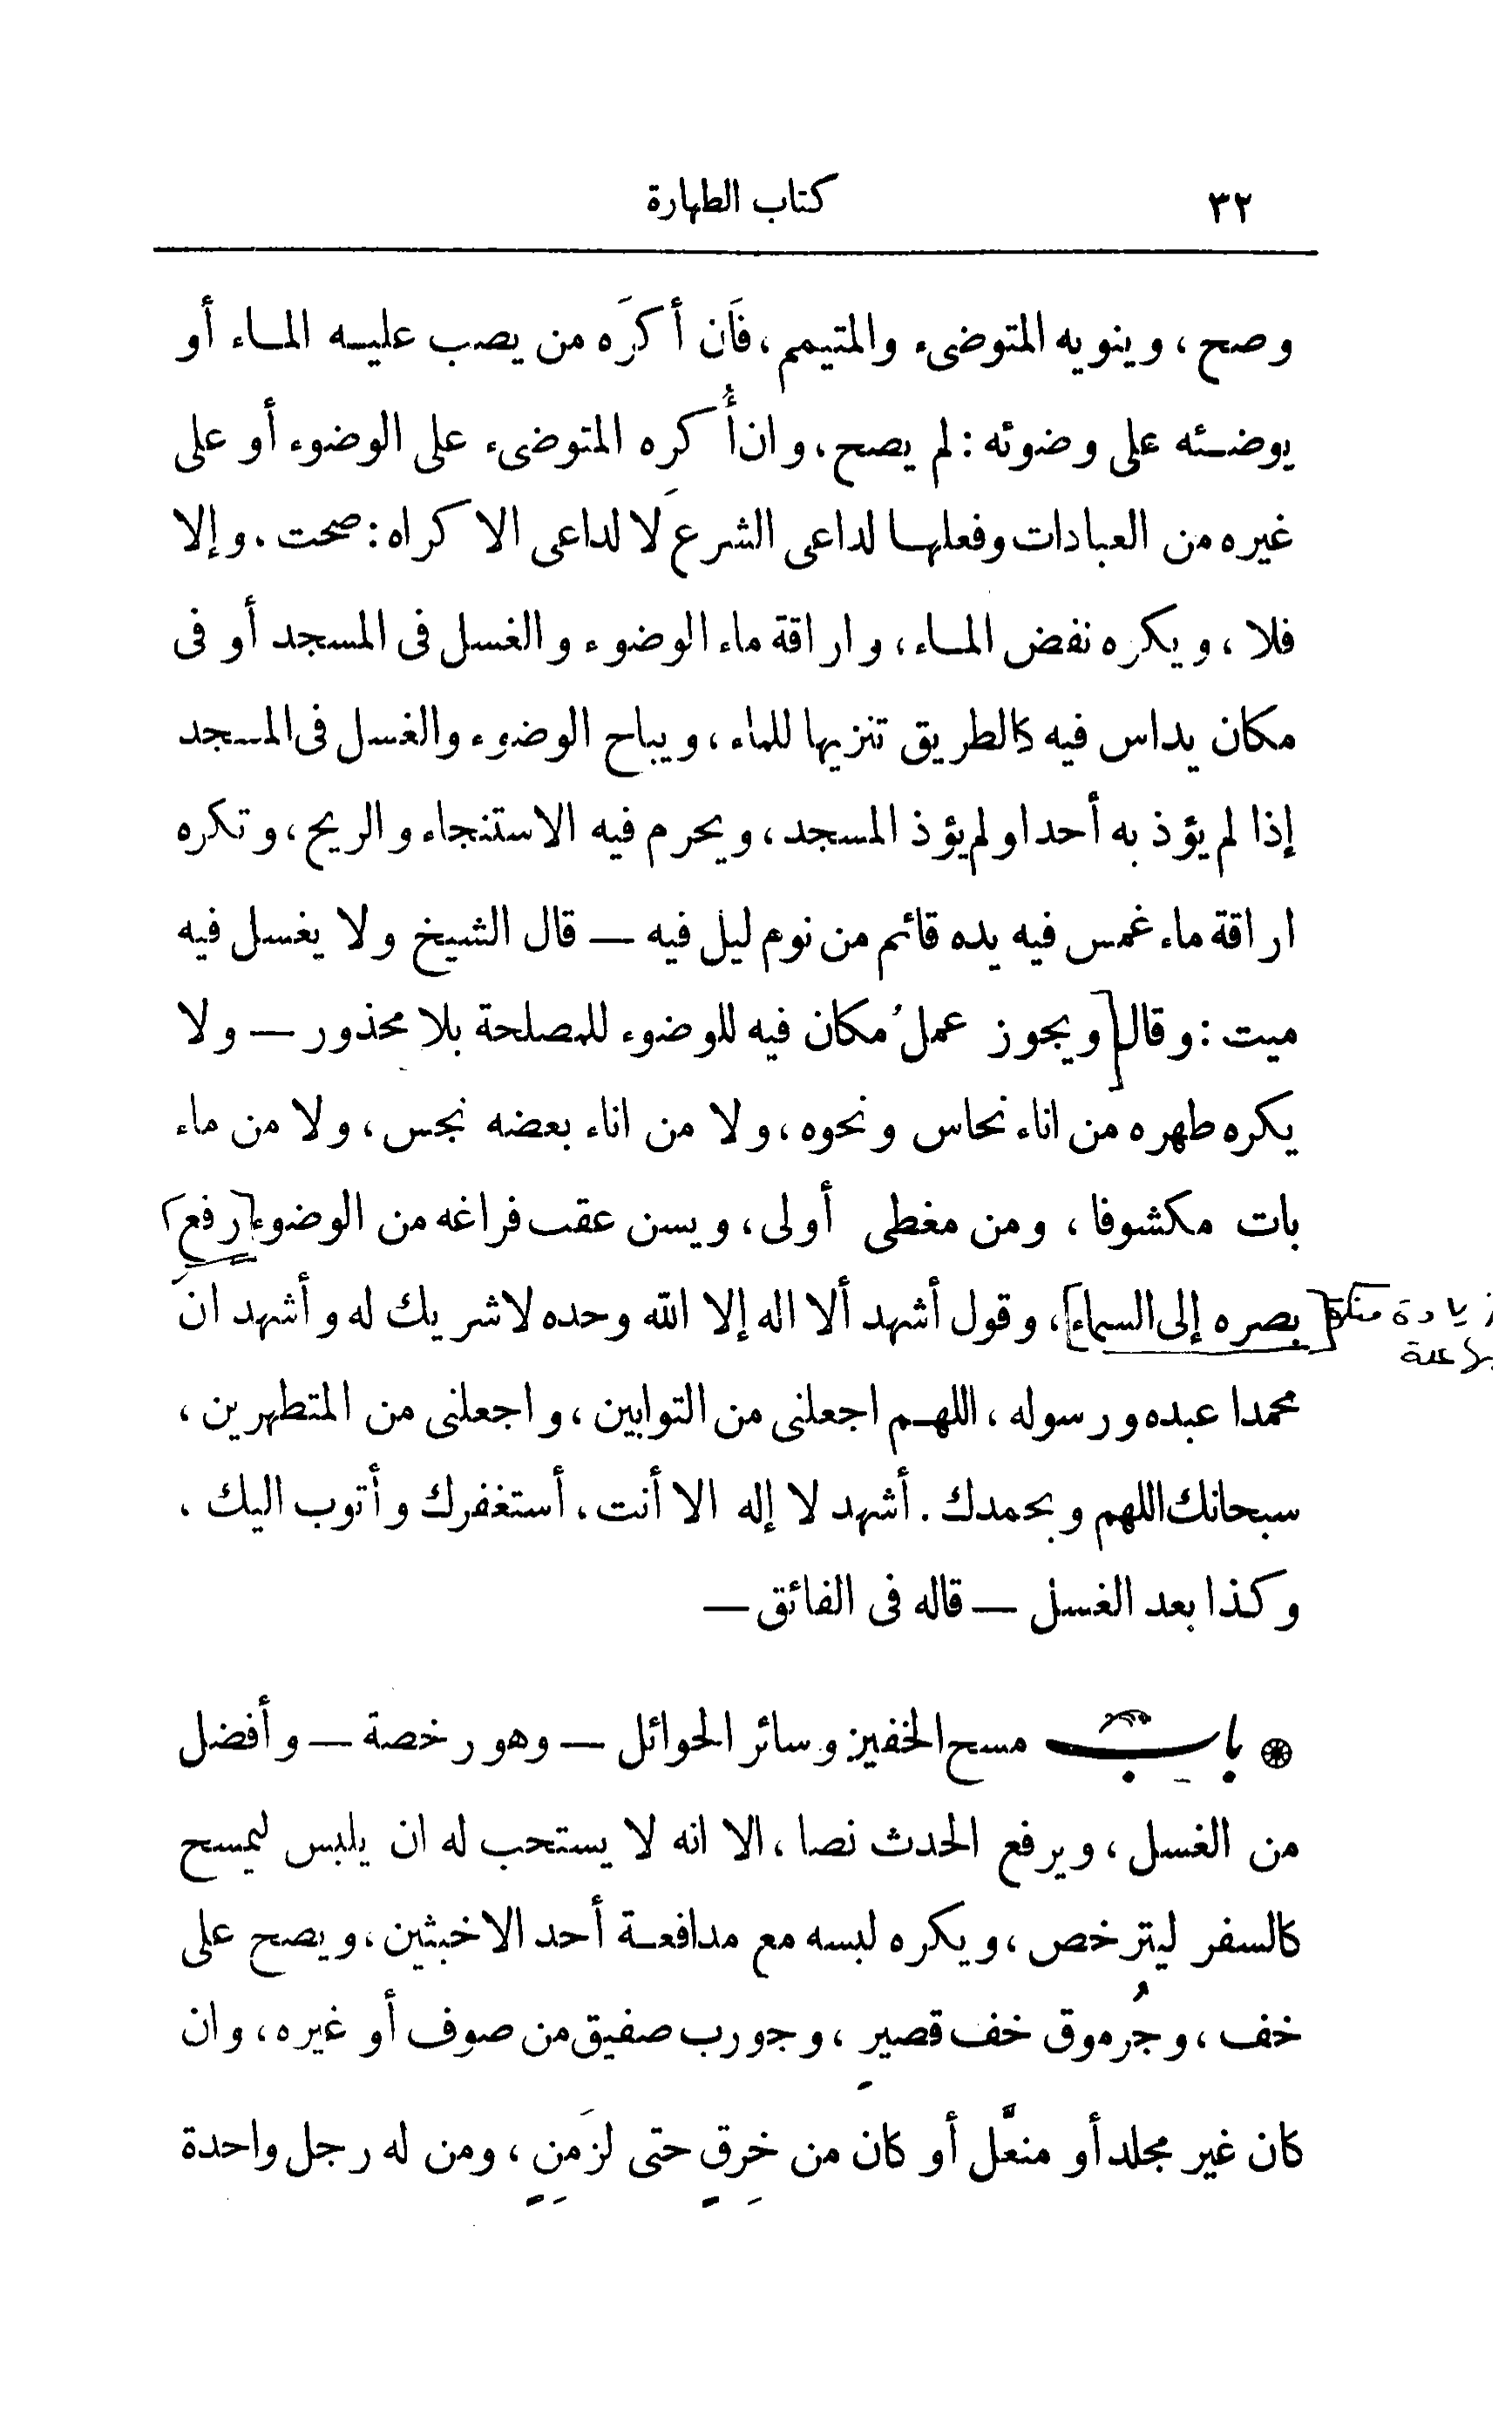 ٣٢ كتاب الطهارة
وصح، وينويه المتوضىء والمتيمم، فَان أكرَه من يصب عليه الماء أو
يوضئه على وضوئه: لم يصح، وان أُكره المتوضىء على الوضوء أو على
غيره من العبادات وفعلها لداعى الشرع لَا لداعى الاكراه: صحت. وإلا
فلا، ويكره نفض الماء، واراقة ماء الوضوء والغسل فى المسجد أو فى
مكان يداس فيه كالطريق تنزيها للماء، ويباح الوضوء والغسل فى المسجد
إذا لم يؤذ به أحدا ولم يؤذ المسجد، ويحرم فيه الاستنجاء والريح، وتكره
اراقة ماء غمس فيه يده قائم من نوم ليل فيه — قال الشيخ ولا يغسل فيه
ميت: وقال [ويجوز عملُ مكان فيه للوضوء للمصلحة بلا محذور — ولا
يكره طهره من اناء نحاس ونحوه، ولا من اناء بعضه نجس، ولا من ماء
بات مكشوفا، ومن مغطى أولى، ويسن عقب فراغه من الوضوء [رفع]
[بصره إلى السماء]، وقول أشهد ألا اله إلا الله وحده لاشريك له وأشهد انَ
زيادة منكرة
علة
محمدا عبده ورسوله، اللهم اجعلنى من التوابين، واجعلنى من المتطهرين،
سبحانك اللهم وبحمدك. أشهد لا إله الا أنت، أستغفرك وأتوب اليك.
وكذا بعد الغسل — قاله فى الفائق —
باب مسح الخفين وسائر الحوائل — وهو رخصة — وأفضل
من الغسل، ويرفع الحدث نصا، الا انه لا يستحب له ان يلبس ليمسح
كالسفر ليترخص، ويكره لبسه مع مدافعة أحد الاخبثين، ويصح على
خف، وجُرموق خف قصيرِ، وجورب صفيق من صوف أو غيره، وان
كان غير مجلد أو منعَّل أو كان من خِرقٍ حتى لزَمِنٍ، ومن له رجل واحدة